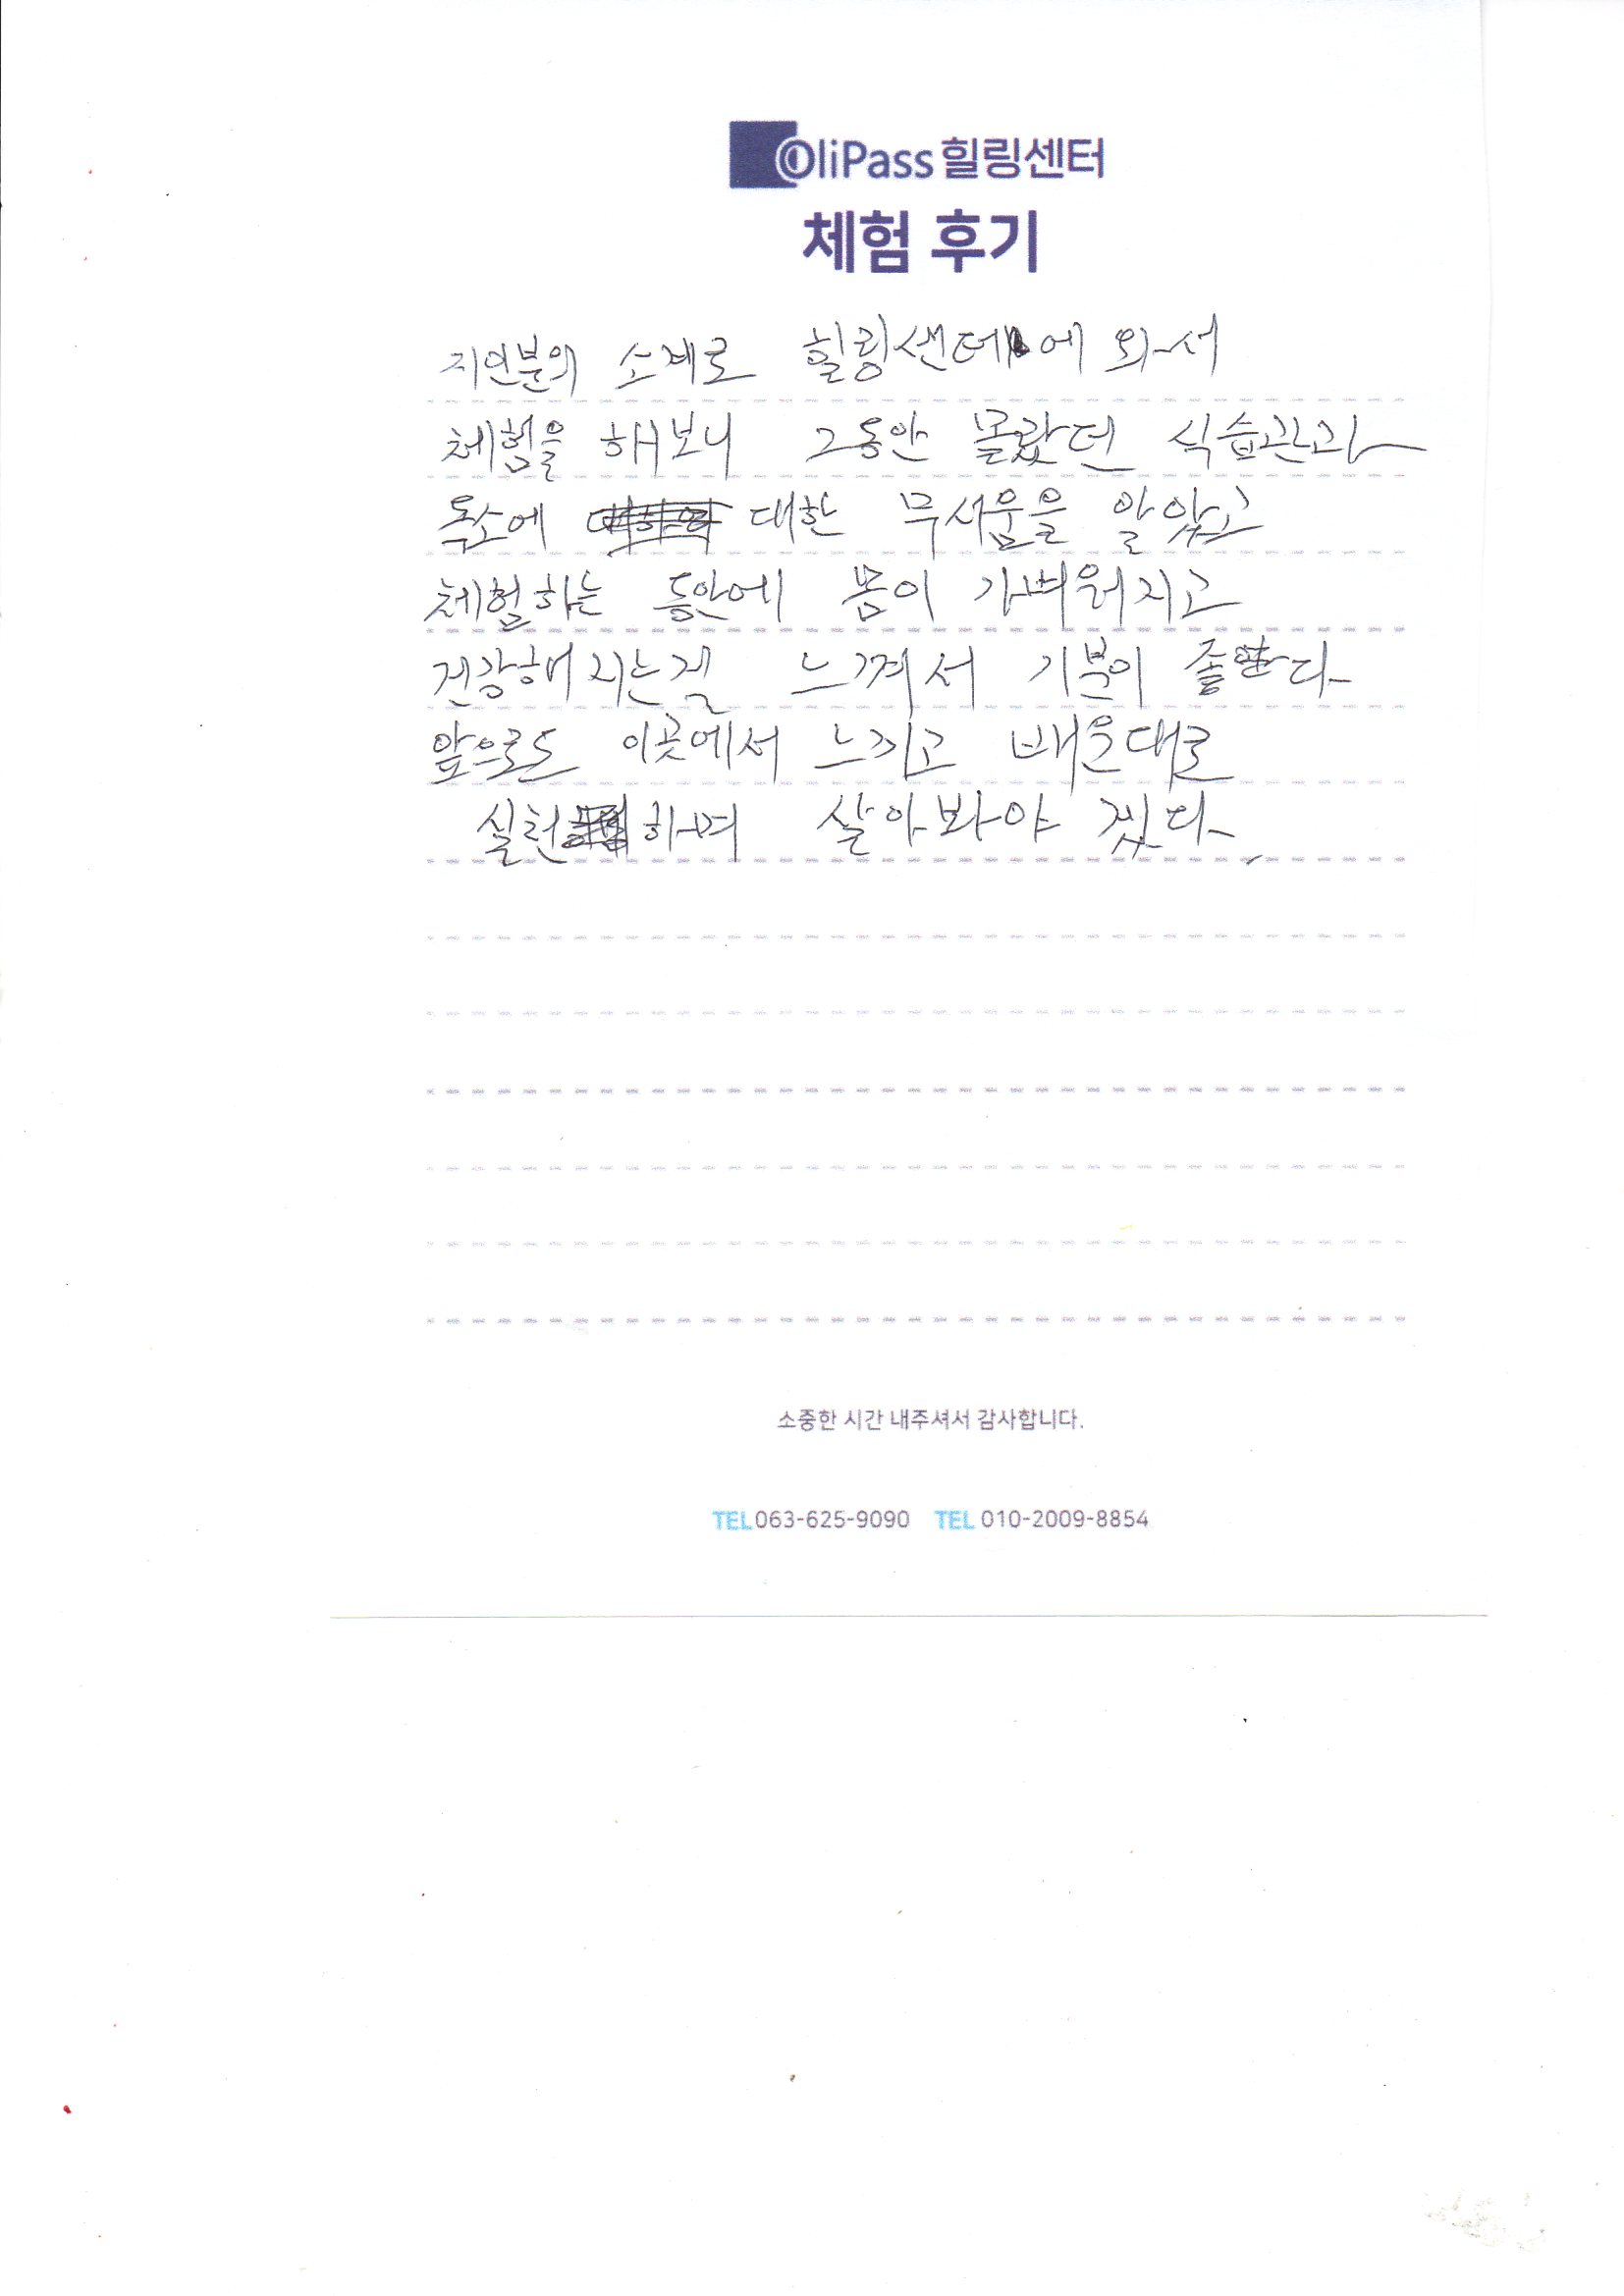 OliPass 힐링센터
체험 후기
지인분의 소개로 힐링센터에 와서
체험을 해보니 그동안 몰랐던 식습관과
독소에 대한 무서움을 알았고
체험하는 동안에 몸이 가벼워지고
건강해지는걸 느껴서 기분이 좋았다
앞으로도 이곳에서 느끼고 배운대로
실천하며 살아봐야 겠다.
소중한 시간 내주셔서 감사합니다.
TEL 063-625-9090 TEL 010-2009-8854